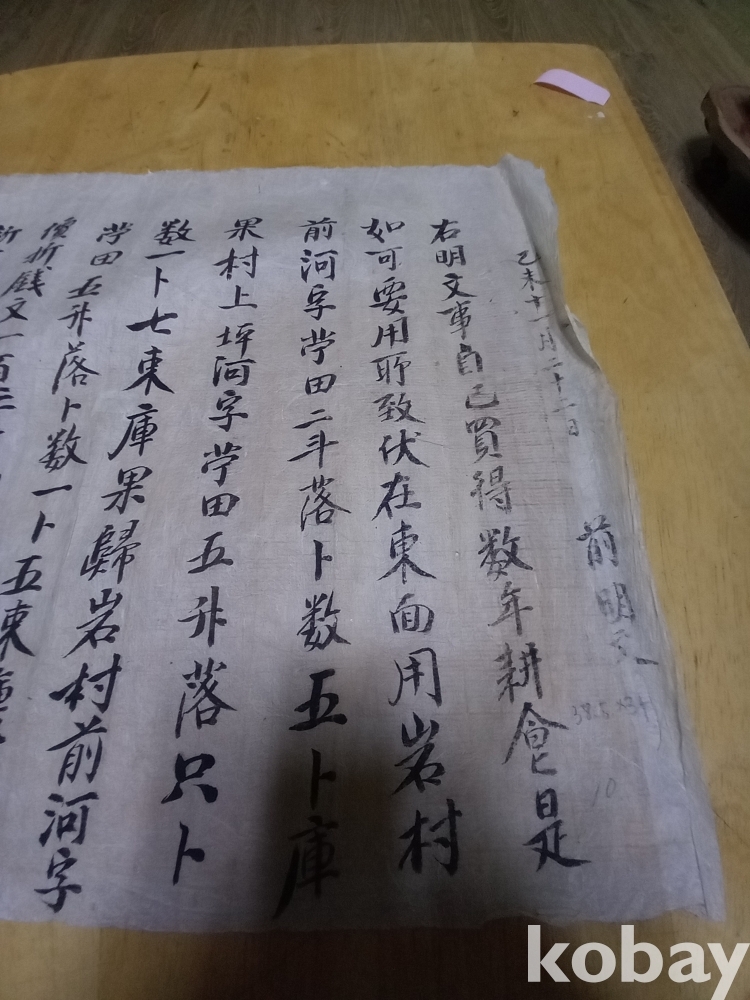 己未十一月二十一日
前明文
右明文事自己買得数年耕食是
如可要用所致伏在東面用岩村
前河字畓田二斗落卜数五卜庫
果村上坪河字畓田五升落只卜
数一卜七束庫果歸岩村前河字
畓田五升落卜数一卜五束庫
價折錢文一百
38.5 ×
10
kobay